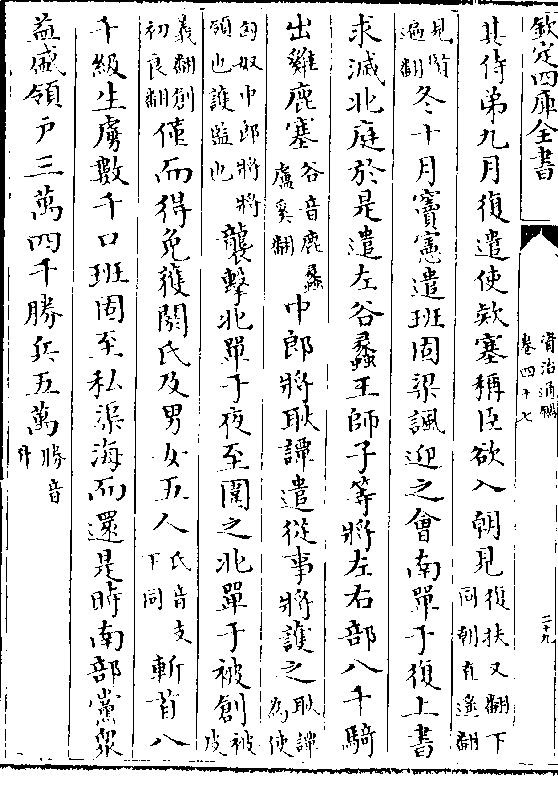 欽定四庫全書
資治通鑑
卷四十七
二十九
其侍弟九月復遣使欵塞稱臣欲入朝見復扶又翻下同朝直遥翻
見賢遍翻冬十月竇憲遣班固梁諷迎之會南單于復上書
求滅北庭於是遣左谷蠡王師子等將左右部八千騎
出雞鹿塞谷音鹿蠡盧奚翻中郎將耿譚遣從事將護之耿譚為使
匈奴中郎將將領也護監也襲擊北單于夜至圍之北單于被創被皮
義翻創初良翻僅而得免獲閼氏及男女五人氏音支下同斬首八
千級生虜數千口班固至私渠海而還是時南部黨衆
益盛領户三萬四千勝兵五萬勝音升